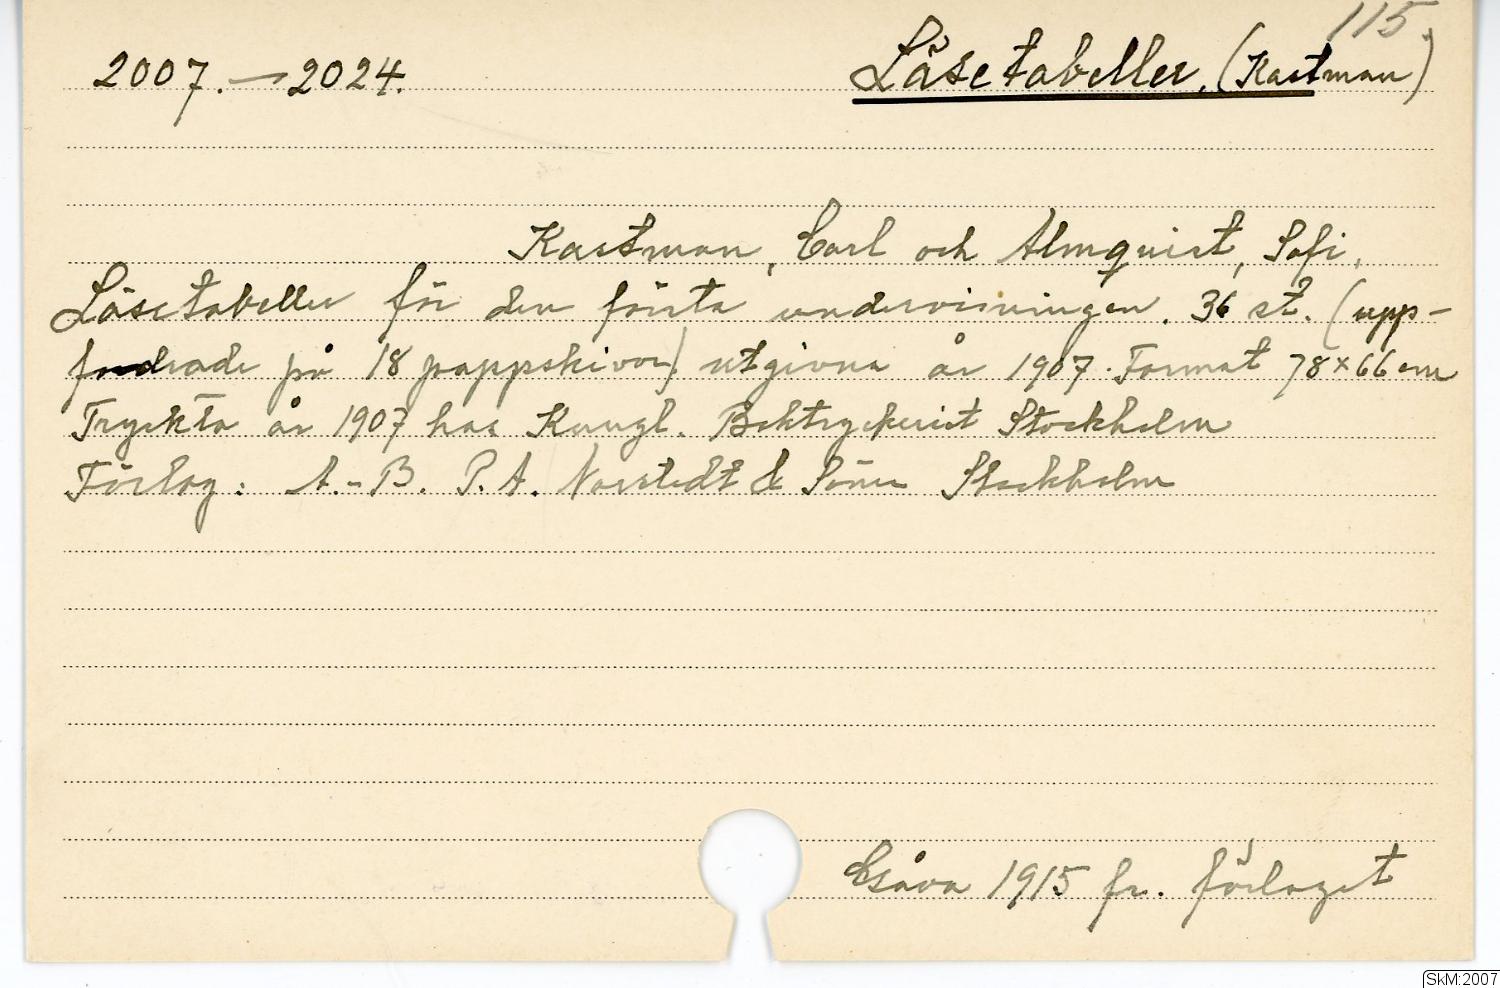 115.
2007. — 2024. Läsetabeller. (Kastman)
Kastman, Carl och Almquist, Sofi.
Läsetabeller för den första undervisningen. 36 st. (upp-
fodrade på 18 pappskivor) utgivna år 1907. Format 78×66 cm
Tryckta år 1907 hos Kungl. Boktryckeriet Stockholm
Förlag: A.-B. P. A. Norstedt & Söner Stockholm
Gåva 1915 fr. förlaget
SkM:2007